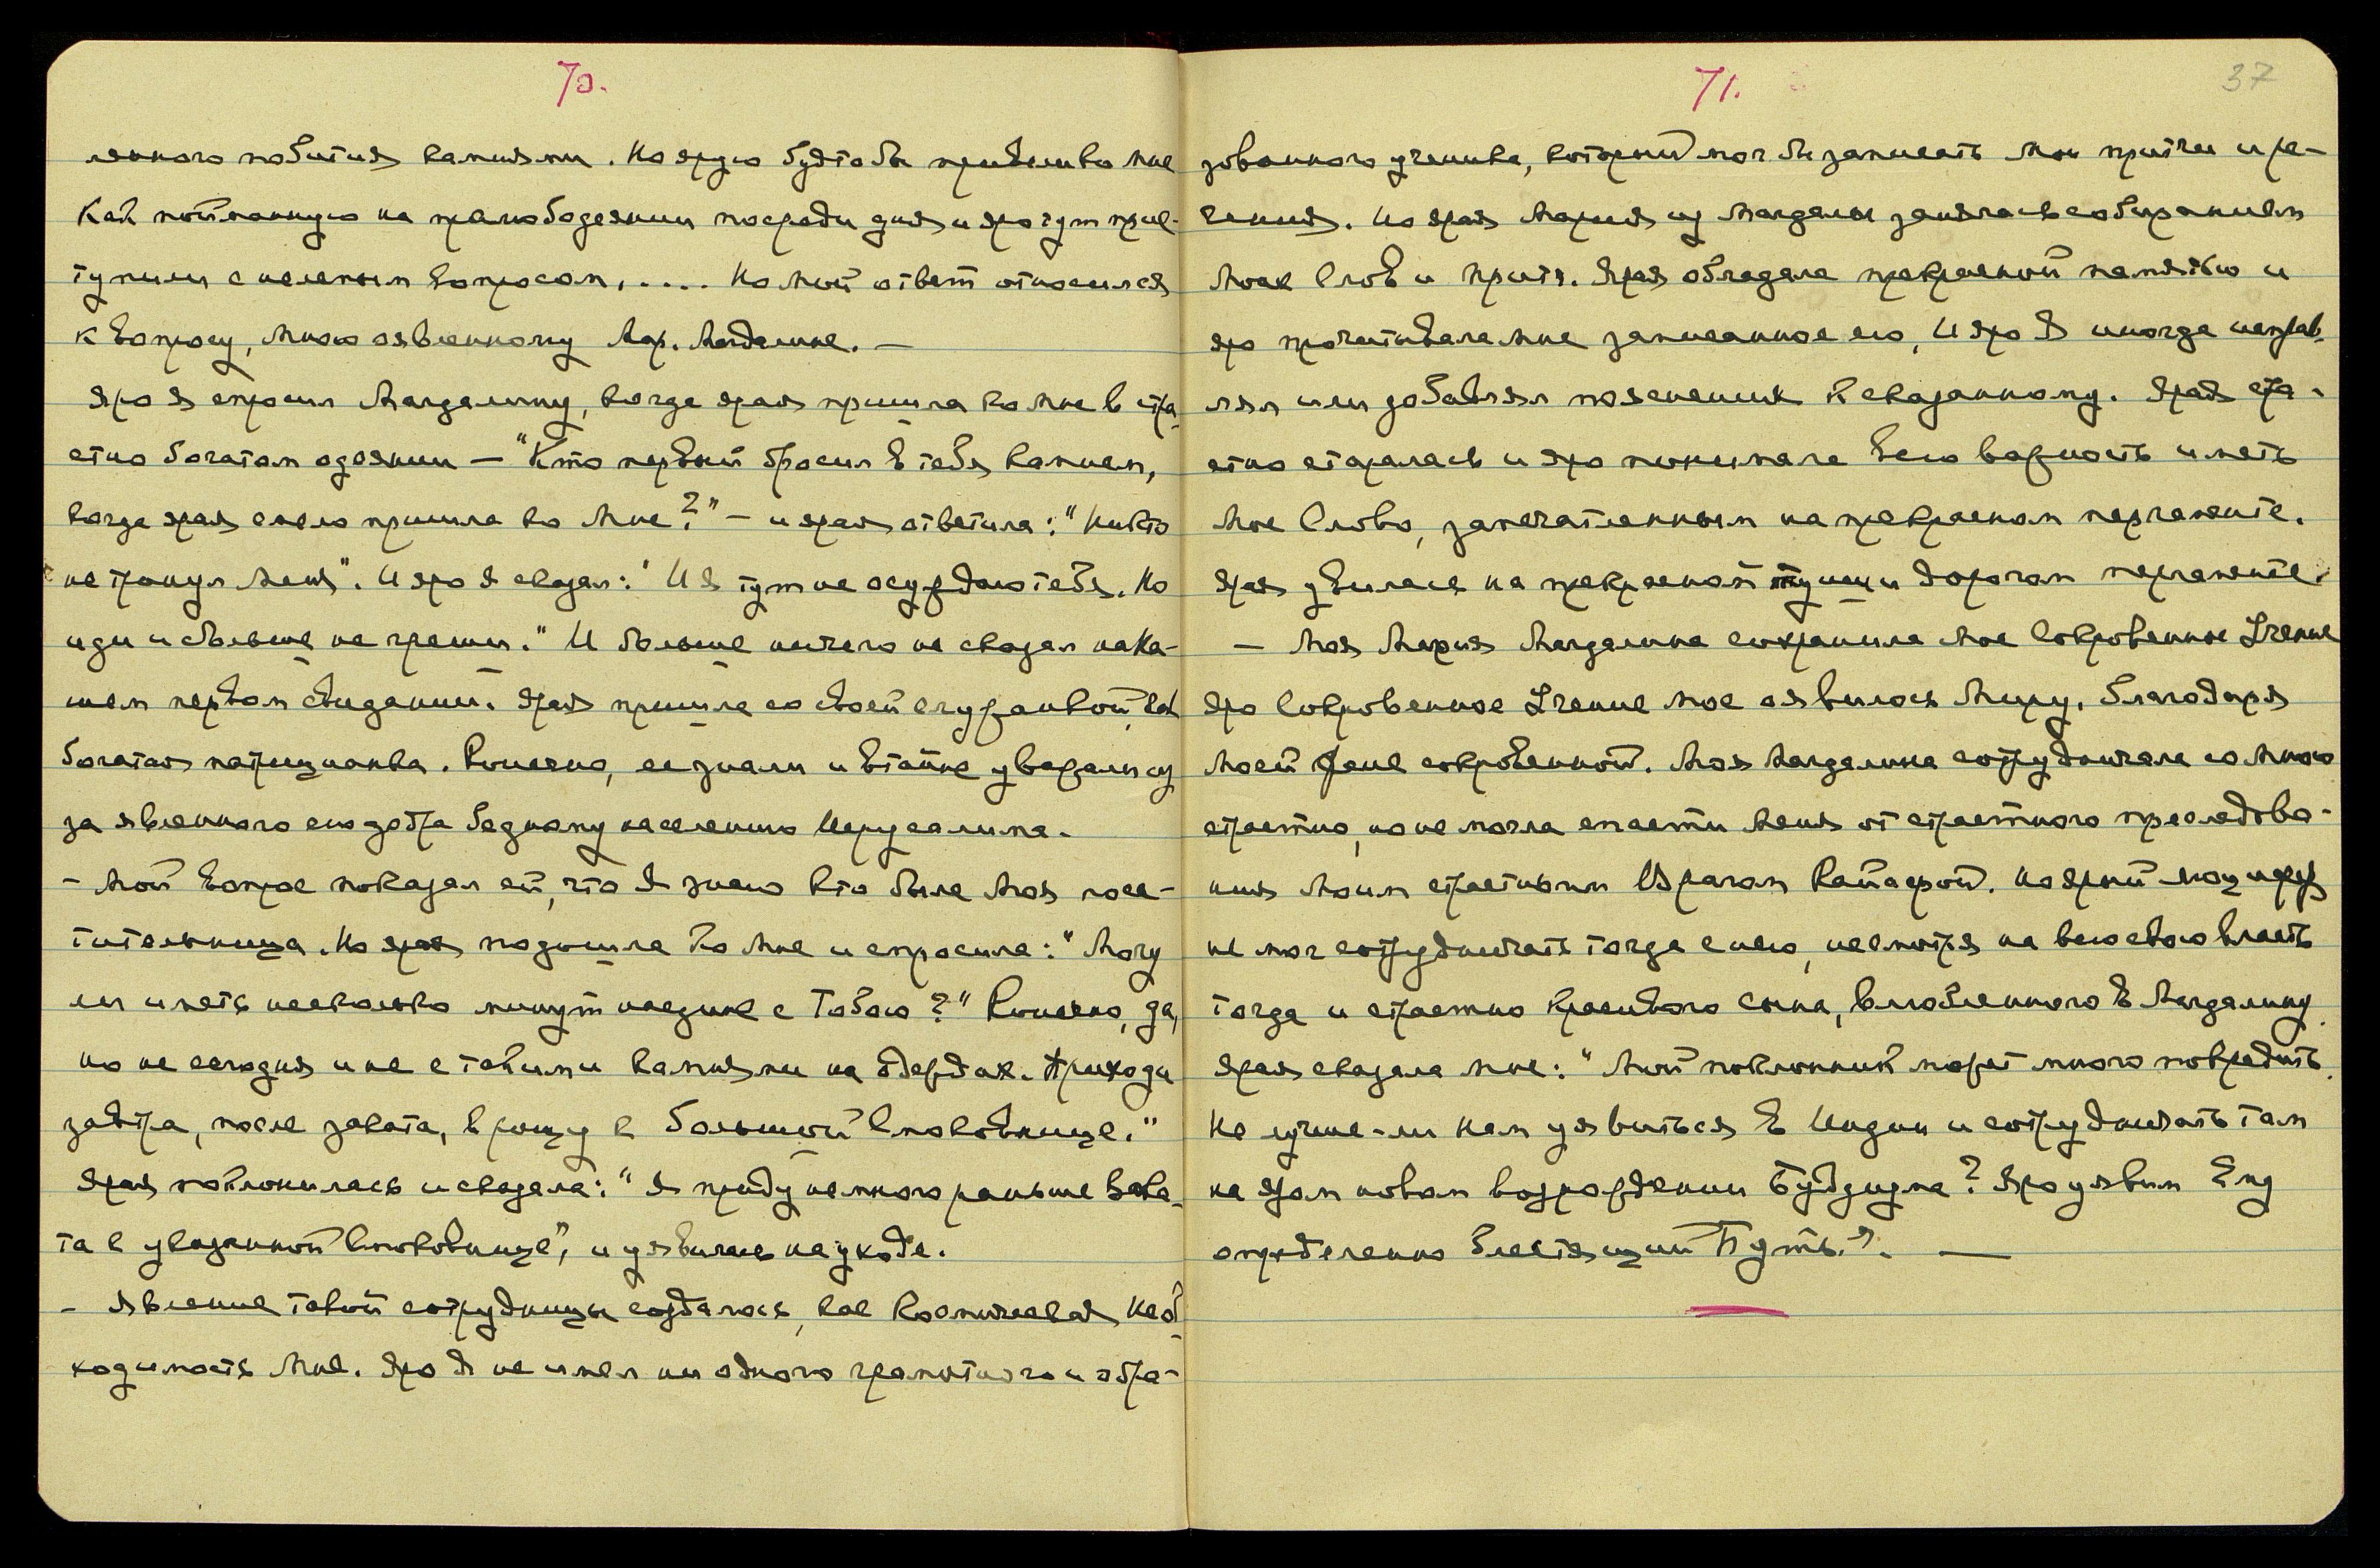 70.
лянного побития камнями. Но ярую будто бы привели ко мне
Как пойманную на прелюбодеянии посреди дня и яро тут прис-
тупили с нелепым вопросом, .... Но мой ответ относился
к вопросу, мною явленному Мар. Магдалине. —
Яро Я спросил Магдалину, когда ярая пришла ко мне в стра-
стно богатом одеянии — "Кто первый бросил в тебя камнем,
когда ярая смело пришла ко Мне?" — и ярая ответила: "Никто
не тронул меня". И яро Я сказал: "И Я тут не осуждаю тебя. Но
иди и больше не греши." И больше ничего не сказал на на-
шем первом свидании. Ярая пришла со своей служанкой, как
богатая патрицианка. Конечно, ее знали и втайне уважали из
за явленного ею добра бедному населению Иерусалима.
- Мой вопрос показал ей, что Я знаю кто была Моя посе-
тительница. Но ярая подошла ко Мне и спросила: "Могу
ли иметь несколько минут наедине с Тобою?" Конечно, да,
но не сегодня и не с такими камнями на одеждах. Приходи
завтра, после заката, в рощу к большой смоковнице."
Ярая поклонилась и сказала: "Я приду немного раньше зака-
та к указанной смоковнице", и уявилась на уходе.
- Явление такой сотрудницы создалось, как Космическая необ-
ходимость Мне. Яро Я не имел ни одного грамотного и обра-
71.
37
зованного ученика, который мог бы записать Мои притчи и ре-
чения. Но ярая Мария из Магдалы занялась собиранием
Моих Слов и Притч. Ярая обладала прекрасной памятью и
яро прочитывала мне записанное ею, И яро Я иногда исправ-
лял или добавлял пояснения к сказанному. Ярая стра-
стно старалась и яро понимала всю важность иметь
Мое Слово, запечатленным на прекрасном пергаменте.
Ярая уявилась на прекрасной туши и дорогом пергаменте.
— Моя Мария Магдалина сохранила Мое Сокровенное Учение
Яро Сокровенное Учение Мое оявилось Миру, благодаря
Моей Жене сокровенной. Моя Магдалина сотрудничала со Мною
страстно, но не могла спасти Меня от страстного преследова-
ния Моим страстным Врагом Кайафой. Но ярый
не мог сотрудничать тогда с нею, несмотря на всю свою власть
тогда и страстно красивого сына, влюбленного в Магдалину.
Ярая сказала Мне: "Мой поклонник может много повредить.
Не лучше-ли нам уявиться в Индии и сотрудничать там
на яром новом возрождении Буддизма? Яро уявим Ему
определенно блестящий Путь." —